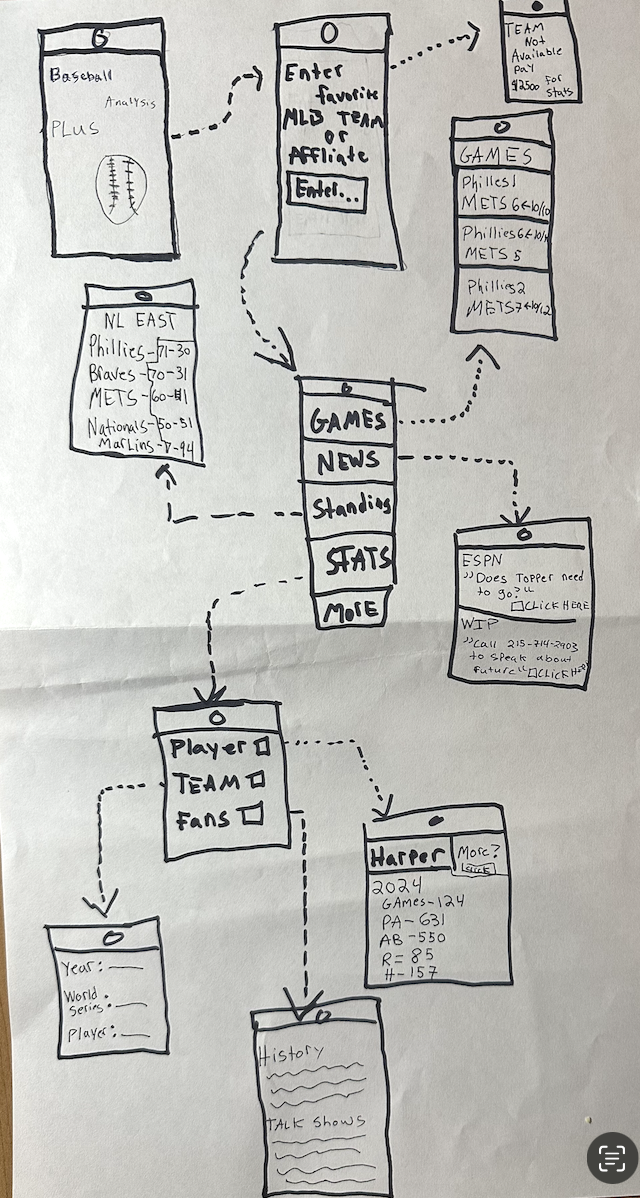 Baseball
Analysis
PLUS
Enter
favorite
MLB TEAM
or
AFFliate
Enter...
TEAM
Not
Available
Pay
$2500 For
Stats
GAMES
Philles 1
METS 6
Phillies 6
METS 5
Phillies 2
METS 7
NL EAST
Phillies-71-30
Braves-70-31
METS-60-41
Nationals-50-51
Marlins-7-94
GAMES
NEWS
Standing
STATS
MORE
ESPN
"Does Topper need
to go?"
CLICK HERE
WIP
"Call 215-714-2903
to speak about
future"
Player
TEAM
Fans
Harper
More?
CLICK
2024
GAMes-124
PA-631
AB-550
R=85
H-157
Year:
World
Series:
Player:
History
TALK Shows